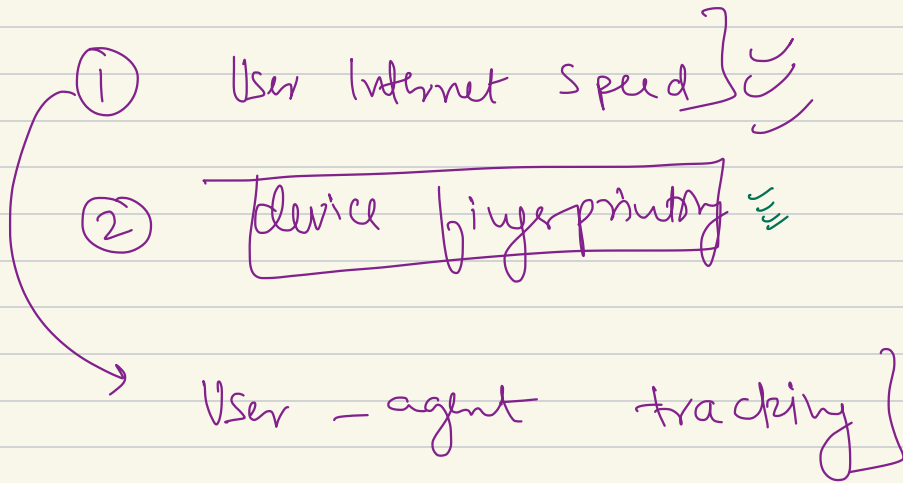 1 User Internet Speed
2 device fingerprinting
User-agent tracking